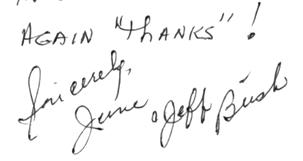 AGAIN "THANKS"!
Sincerely,
June & Jeff Bush